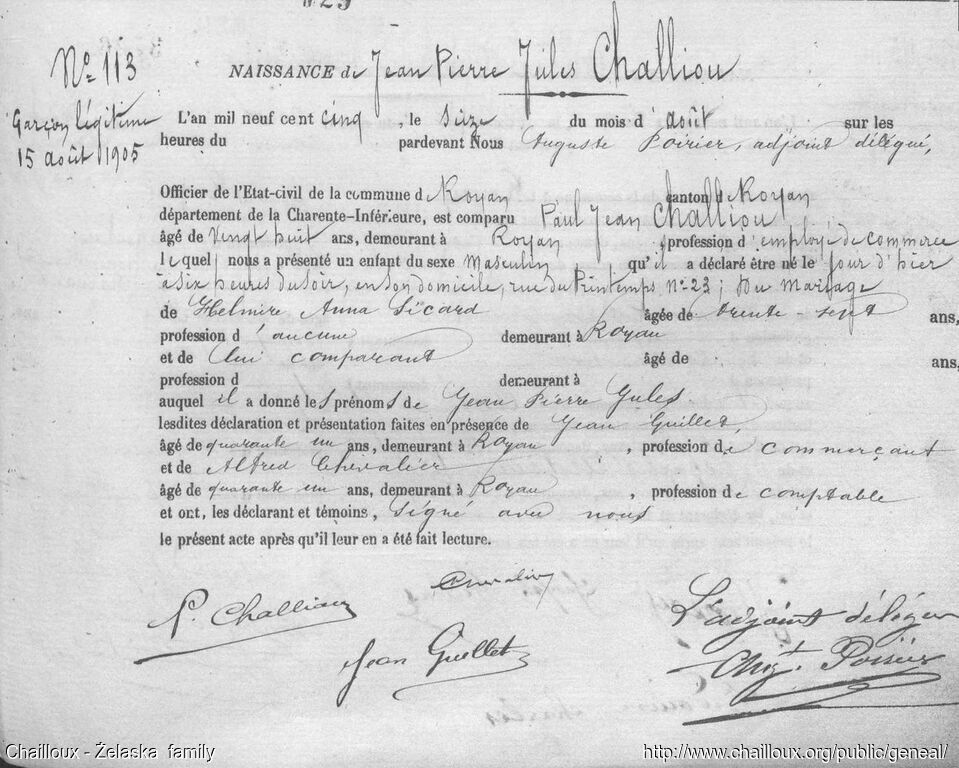 N° 113
NAISSANCE de Jean Pierre Jules Challiou
Garçon légitime
15 août 1905
L'an mil neuf cent cinq, le seize du mois d'août sur les
heures du pardevant Nous Auguste Poirier, adjoint délégué,
Officier de l'Etat-civil de la commune d Royan canton d Royan
département de la Charente-Inférieure, est comparu Paul Jean Challiou
âgé de vingt huit ans, demeurant à Royan, profession d'employé de commerce
lequel nous a présenté un enfant du sexe Masculin qu'il a déclaré être né le jour d'hier
à six heures du soir, en son domicile, rue du Printemps n° 23; Du mariage
de Helmire Anna Sicard âgée de trente-sept ans,
profession d'aucune demeurant à Royan
et de lui comparant âgé de ans,
profession d demeurant à
auquel il a donné les prénoms de Jean Pierre Jules
lesdites déclaration et présentation faites en présence de Jean Guillet,
âgé de quarante un ans, demeurant à Royan, profession de commerçant
et de Alfred Chevalier
âgé de quarante un ans, demeurant à Royan, profession de comptable
et ont, les déclarant et témoins, signé avec nous
le présent acte après qu'il leur en a été fait lecture.
Chevalier
P. Challiou
L'adjoint délégué
Jean Guillet
Aug.t Poirier
Chailloux - Żelaska family
http://www.chailloux.org/public/geneal/